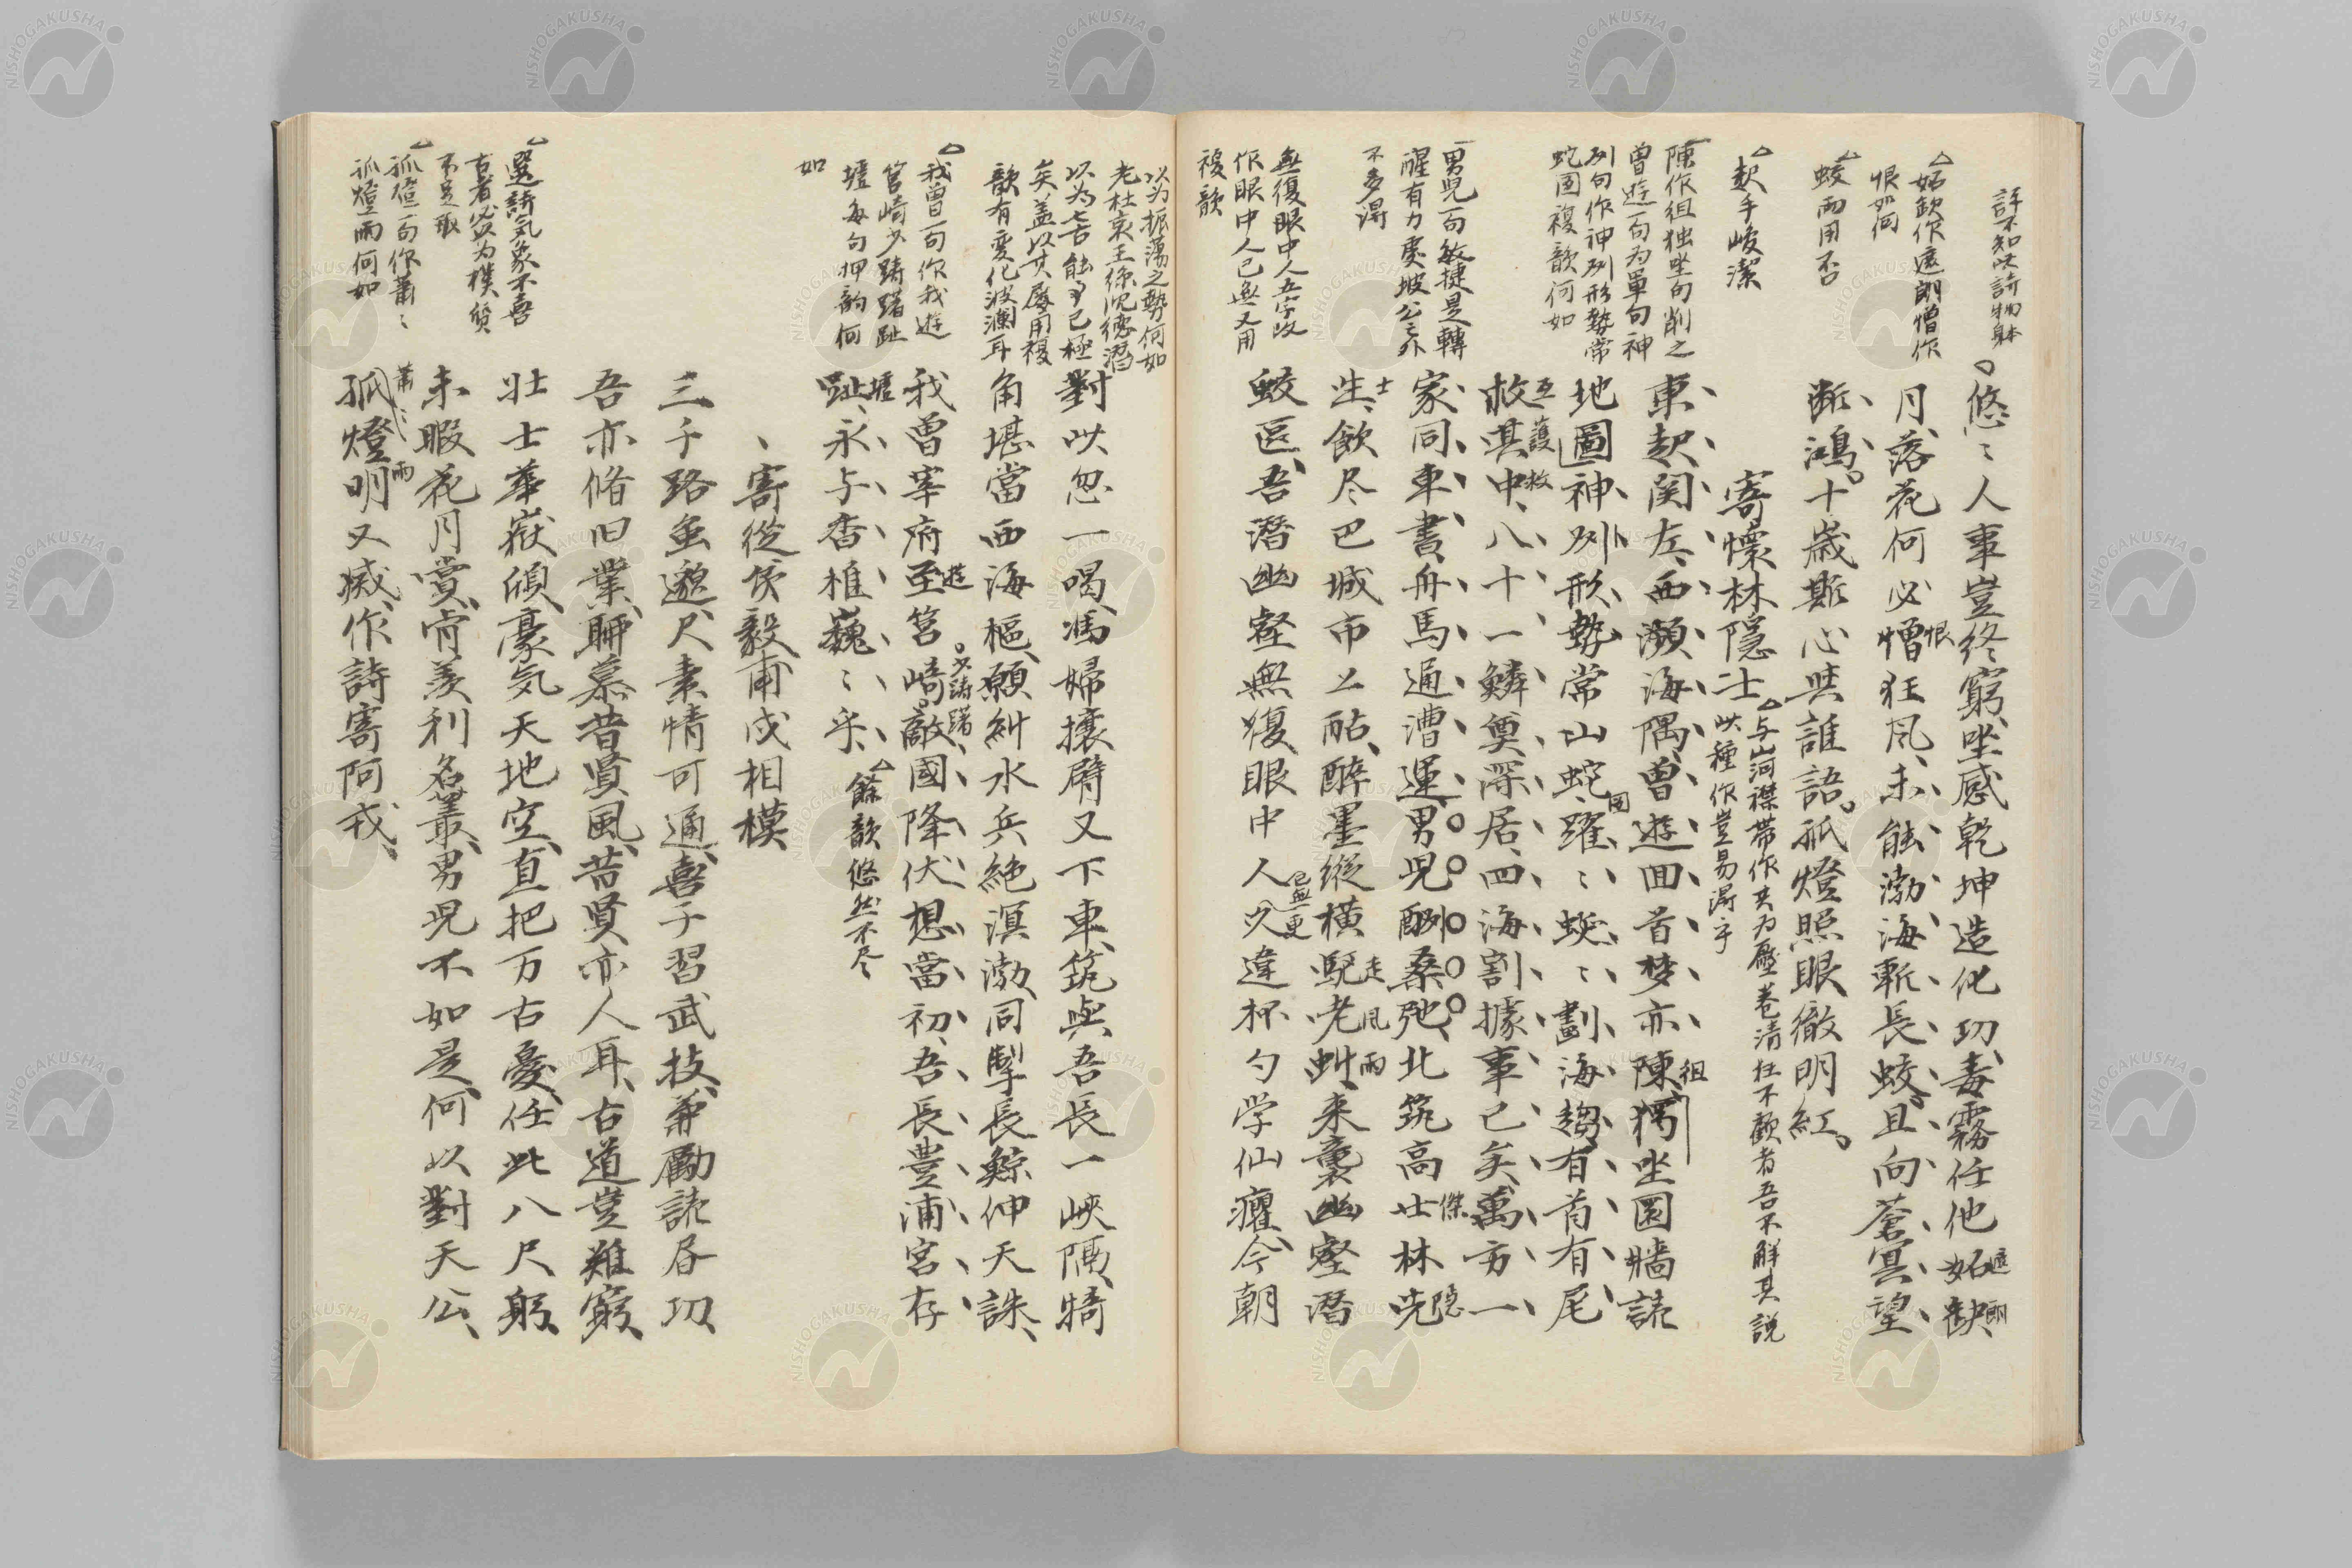 評不知此詩物躰
△妬缺作遮朗憎作
恨如何
△蛟両用否
△起手峻潔
陳作徂独坐句削之
曽遊一句为單句神
列句作神列形勢常
蛇国複歆何如
男児一句敏捷是轉
醒有力處坡公之外
不多得
無復眼中人五字改
作眼中人已無又用
複歆
悠〻人事豈終窮坐感乾坤造化功毒霧任他妬缺
遮朗
月落花何必憎狂風未能渤海斬長蛟且向蒼冥望
恨
断鴻十歳斯心與誰語孤燈照眼徹明紅
寄懷林隠士
△与山河襟帯作共为壓巻清狂不羈者吾不解其説
此種作豈易得乎
東起関左西瀕海隅曽遊回首梦亦陳獨坐園牆読
徂
地圖神列形勢常山蛇躍〻蜒〻劃海趨有首有尾
国
救其中八十一鱗奠深居四海割據事已矣萬方一
互護救
家同車書舟馬通漕運男児酬桑弧北筑高士林先
傑隠
生飲尽巴城市上酤醉墨縦横駆老虯来稾幽壑潜
士
走風雨
蛟區吾潜幽壑無復眼中人久違杯勺学仙癯今朝
已無更
以为振蕩之勢何如
老杜哀王孫沈徳潜
以为七古能事已極
矣盖以其屡用複
歆有変化波瀾耳
△我曽一句作我遊
筥崎少躊躇趾
墟每句押韵何
如
△選詩気象不喜
古者必为樸質
不足取
△孤燈一句作蕭〻
孤燈雨何如
對此忽一喝馮婦攘臂又下車筑與吾長一峡隔犄
角堪當西海樞願糾水兵絶溟渤同掣長鯨伸天誅
我曽宰府至筥崎敵國降伏想當初吾長豊浦宮存
遊
少躊躇
趾永与香椎巍〻乎
墟
△餘歆悠然不尽
寄從侯毅甫戍相模
三千路虽邈尺素情可通喜子習武技兼勵読居功
吾亦脩旧業聊慕昔賢風昔賢亦人耳古道豈難窮
壮士華嶽傾豪気天地空直把万古憂任此八尺躬
未暇花月賞寧羨利名叢男児不如是何以對天公
孤燈明又滅作詩寄阿戎
蕭〻
雨